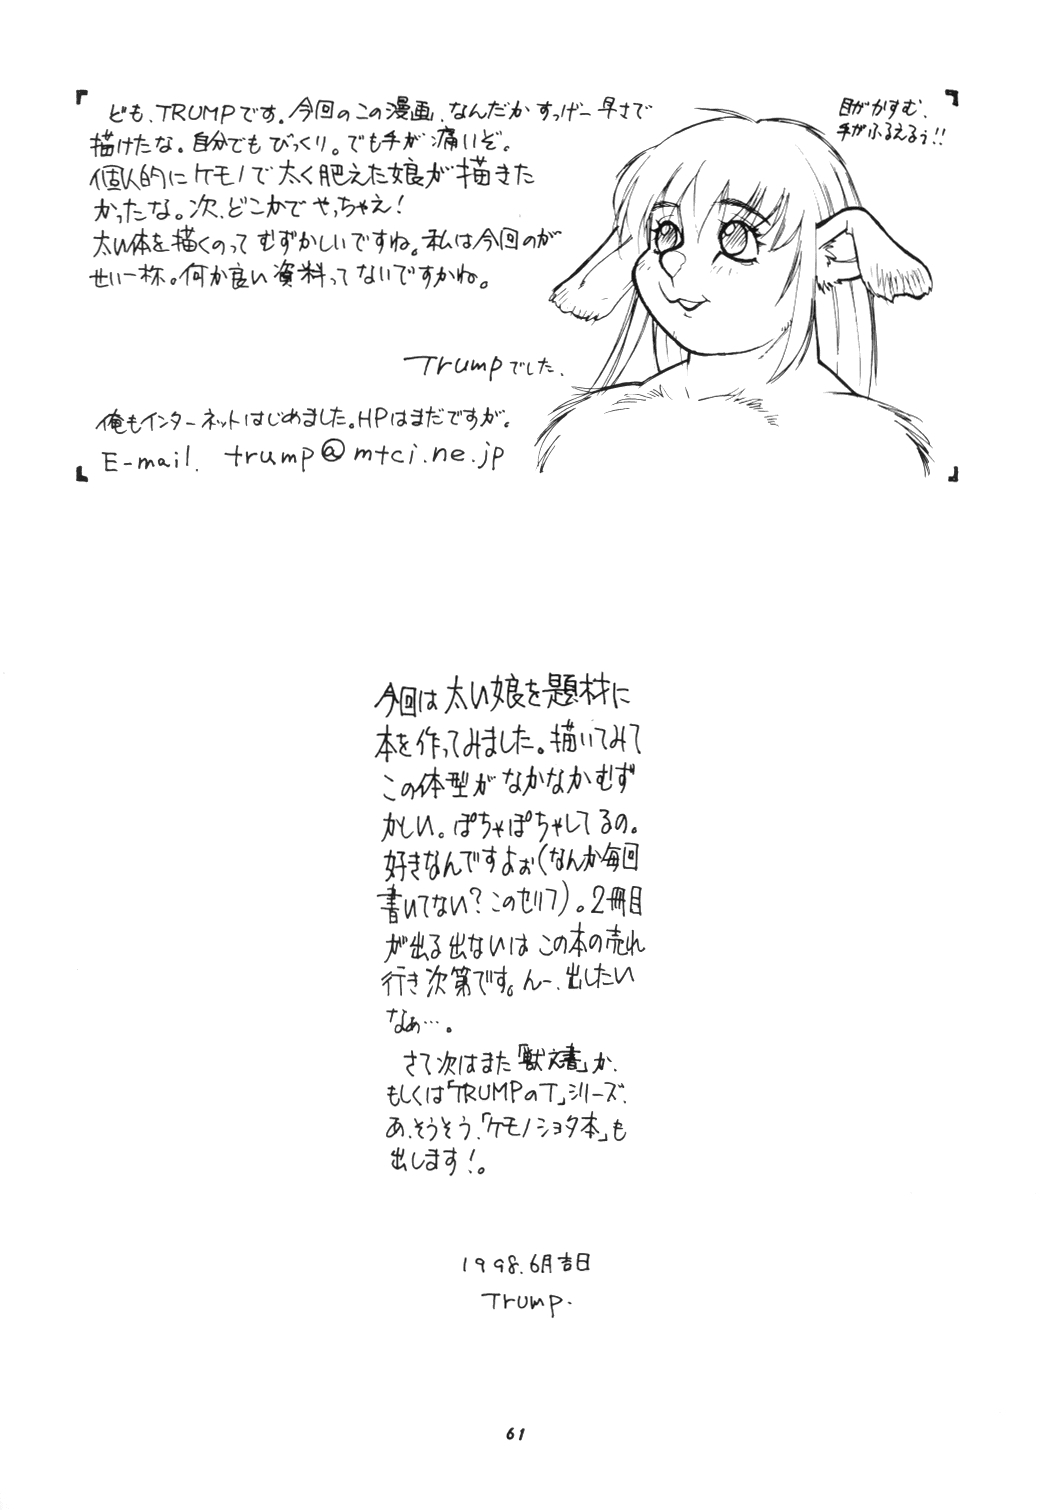 ども、TRUMPです。今回のこの漫画、なんだかすっげー早さで
描けたな。自分でもびっくり。でも手が痛いぞ。
個人的にケモノで太く肥えた娘が描きた
かったな。次、どこかでやっちゃえ!
太い体を描くのってむずかしいですね。私は今回のが
せい一杯。何か良い資料ってないですかね。
Trumpでした.
俺もインターネットはじめました。HPはまだですが。
E-mail. trump@mtci.ne.jp
目がかすむ、
手がふるえるぅ!!
今回は太い娘を題材に
本を作ってみました。描いてみて
この体型がなかなかむず
かしい。ぽちゃぽちゃしてるの。
好きなんですよぉ(なんか毎回
書いてない?このセリフ)。2冊目
が出る出ないはこの本の売れ
行き次第です。んー、出したい
なぁ…。
さて次はまた「獣え書」か、
もしくは「TRUMPのT」シリーズ、
あ、そうそう、「ケモノショタ本」も
出します!。
1998.6月吉日
Trump.
61